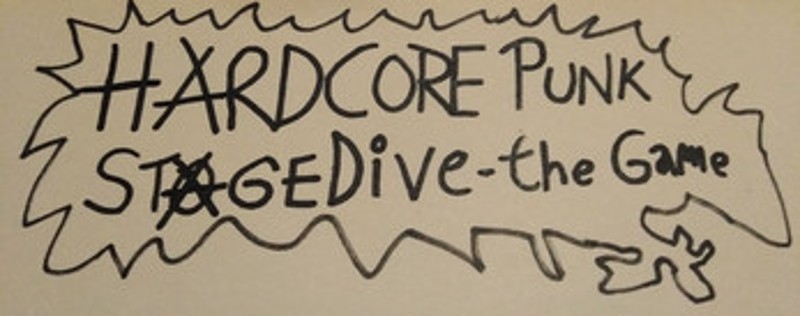 HARDCORE PUNK
STAGEDive-the Game